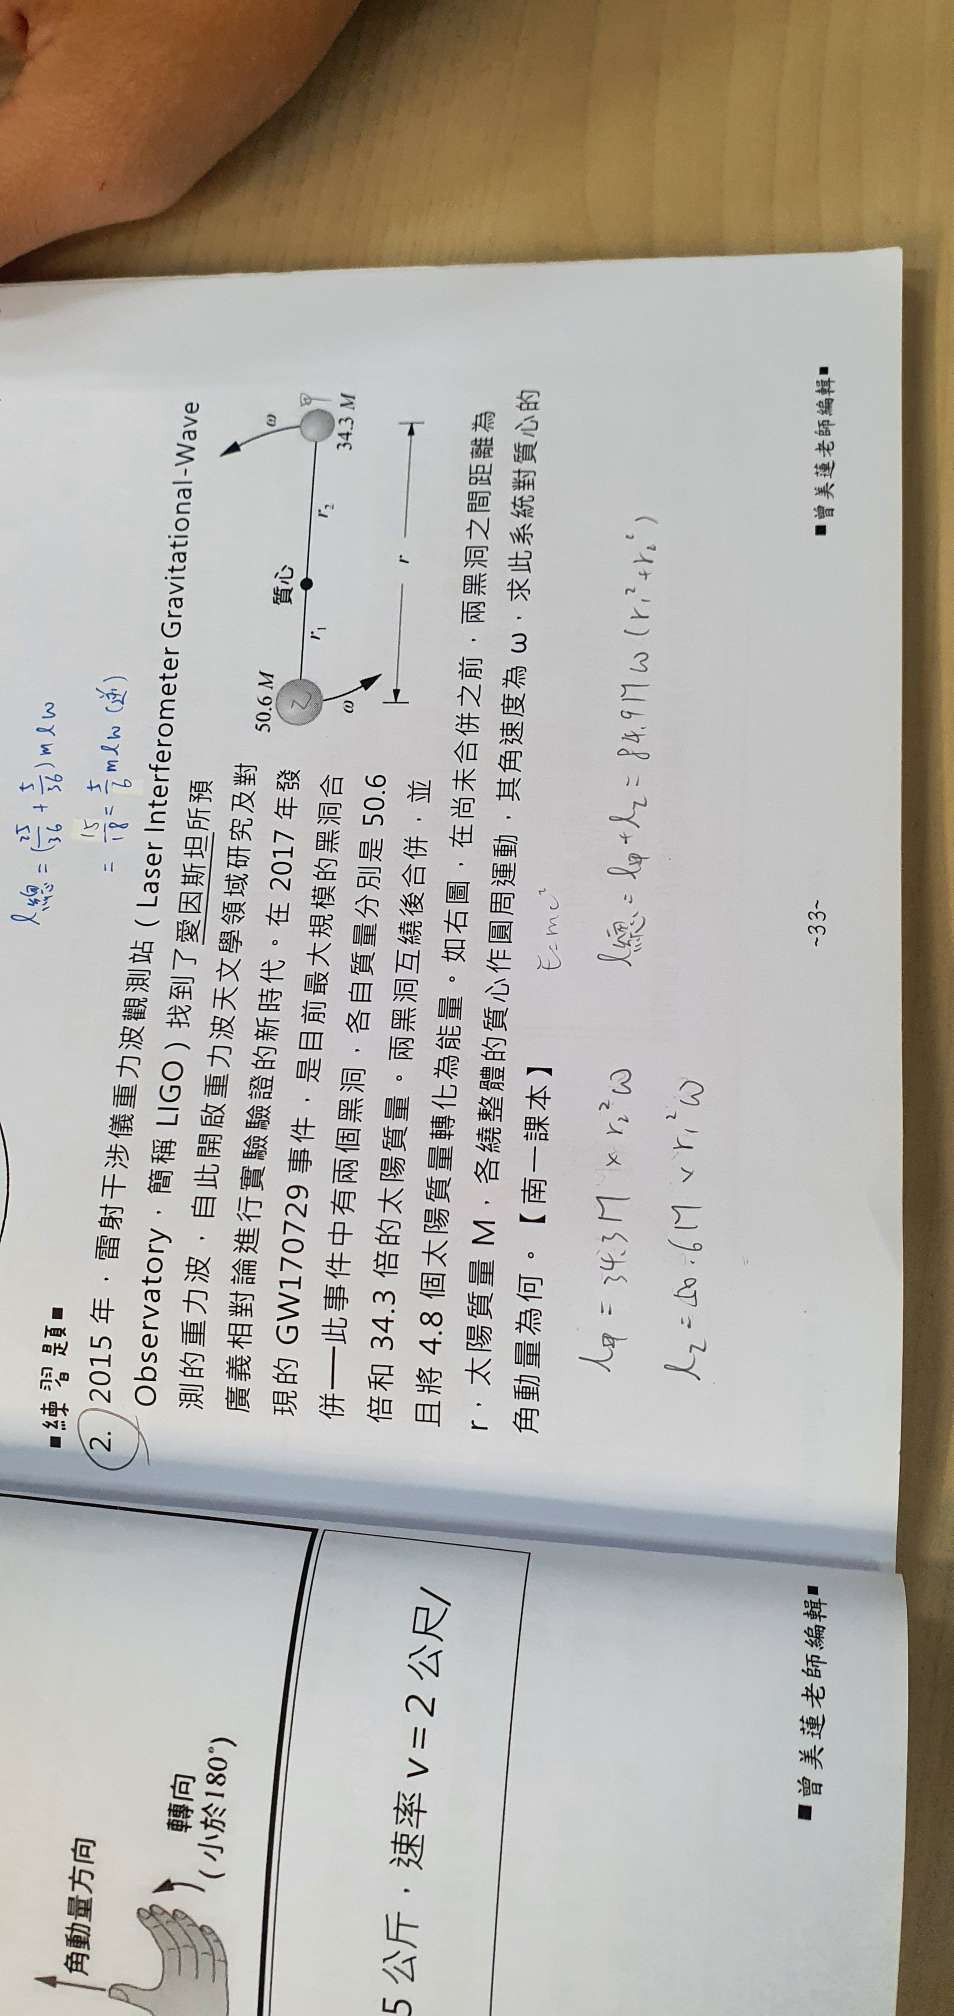 l總 = (25/36 + 5/36) m l ω
= 15/18 = 5/6 m l ω (逆)
■練習題■
2. 2015 年，雷射干涉儀重力波觀測站（Laser Interferometer Gravitational-Wave
Observatory，簡稱 LIGO）找到了愛因斯坦所預
測的重力波，自此開啟重力波天文學領域研究及對
廣義相對論進行實驗驗證的新時代。在 2017 年發
現的 GW170729 事件，是目前最大規模的黑洞合
併──此事件中有兩個黑洞，各自質量分別是 50.6
倍和 34.3 倍的太陽質量。兩黑洞互繞後合併，並
且將 4.8 個太陽質量轉化為能量。如右圖，在尚未合併之前，兩黑洞之間距離為
r，太陽質量 M，各繞整體的質心作圓周運動，其角速度為 ω，求此系統對質心的
角動量為何。【南一課本】
50.6 M
乙
ω
r₁
質心
r₂
ω
甲
34.3 M
r
E=mc²
l甲 = 34.3M × r₂²ω
l乙 = 50.6M × r₁²ω
l總 = l甲 + l乙 = 84.9Mω(r₁²+r₂²)
~33~
■曾美蓮老師編輯■
角動量方向
轉向
(小於180°)
5 公斤，速率 v = 2 公尺/
■曾美蓮老師編輯■